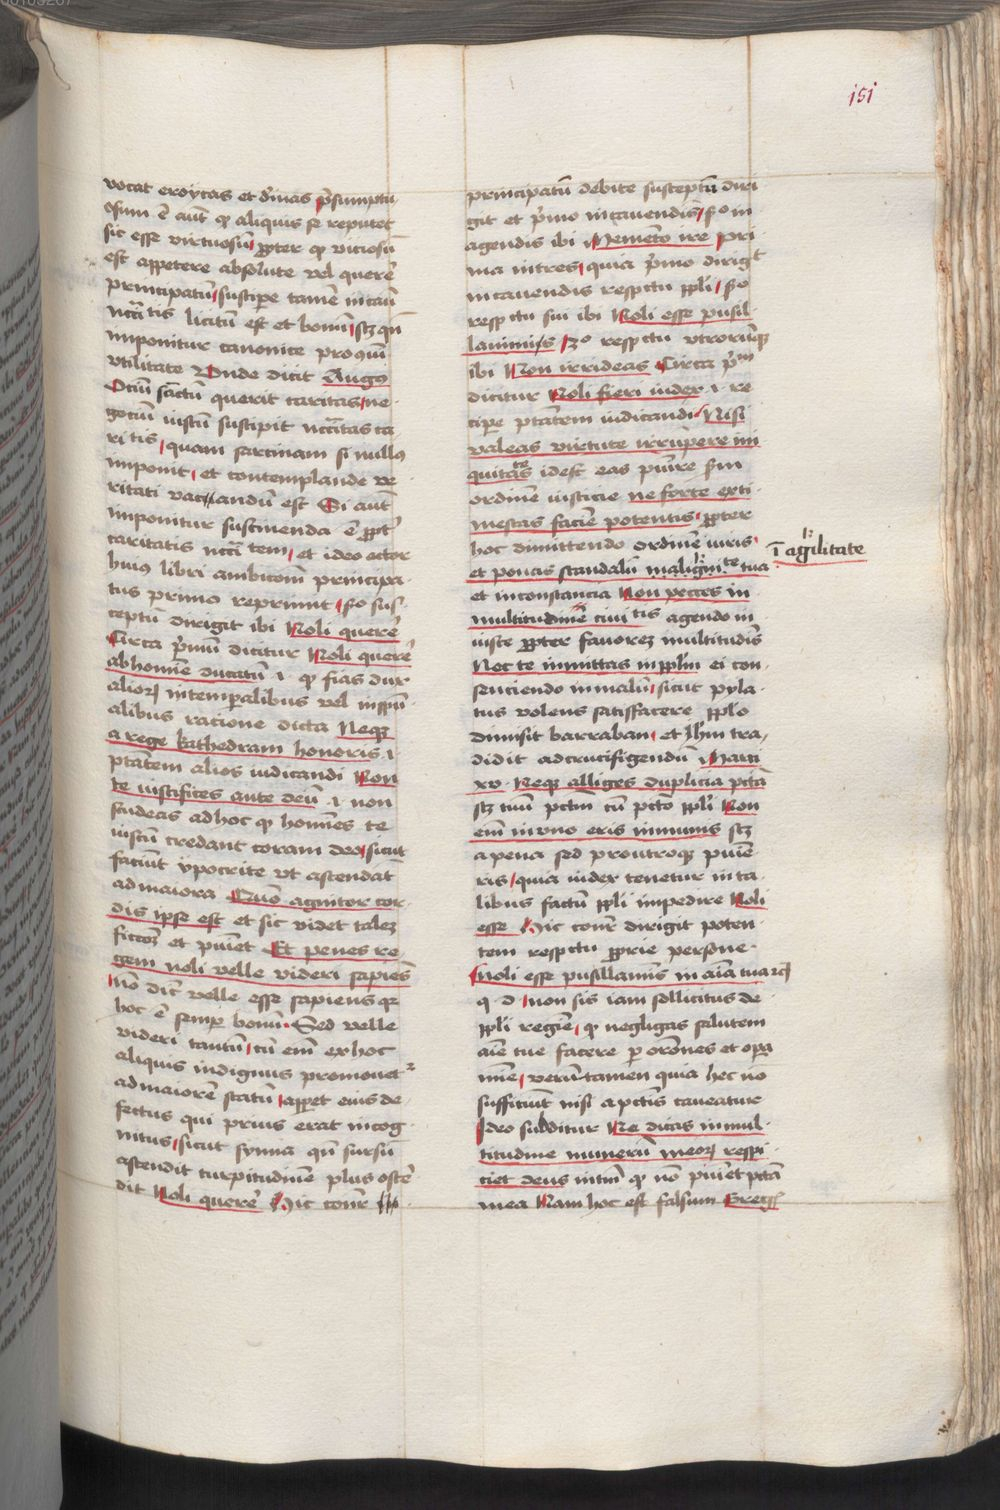 151
vocat eroycas et d'inas p̄sumptu
osum ē aūt qꝫ aliquis se reputet
sic esse virtuosū ꝓpter qꝫ viciosū
est appetere absolute vel querē
principatū suscipe tamē in caū
nccā tis licitū est et bonū scꝫ qn̄
imponitur canonice pro quīī
vtilitate Vnde dicit Augꝰ
Ociū sāctū querit caritas ne
gociū iustū suscipit nccītas ca
ri tis quam sarcinam si nullꝰ
imponit et contemplande ve
ritati vacandū est Si aūt
imponitur suscinenda ē ꝓpt̄
caritatis nccī tem et ideo actor
huiꝰ libri ambitōm principa
tus primo reprimit sᵒ sus
ceptū dirigit ibi Noli querē
Circa p̄mū dicitur Noli querē
ab homīe ducatū .i. qꝫ fias dux
alioꝝ in temporalibus vel in spūī
alibus ratione dicta Neqꝫ
a rege kathedram honoris .i.
ptātem alios iudicandi Non
te iustifices ante deū .i. non
studeas ad hoc qꝫ homīes te
iustū credant coram deo sicut
faciūt ypocrite vt ascendāt
ad maiora Quō agnitor cor
dis ipse est et sic videt tales
fictos et puniet Et penes re
gem noli velle videri sapiēs
nō dic̄ velle esse sapiens qꝛ
hoc ē semꝑ bonū Sed velle
videri tantū cū enī ex hoc
aliquis indignus promouetᷣ
ad maiorē statū appet eius de
fectus qui prius erat incog
nitus sicut symia qn̄ sursū
ascendit turpitudinē plus ostē
dit Noli querē Hic cōnr
principatū debite susceptū diri
git et p̄mo in cauendis sᵒ in
agendis ibi Memēto ire Pri
ma in tres quia p̄mo dirigit
in cauendis respctu ppli sᵒ
respctu sui ibi Noli esse pusil
lanimis 3ᵒ respctu vtrorūqꝫ
ibi Non irrideas Circa p̄m
dicitur Noli fieri iudex .i. re
cipe ptātem iudicandi Nisi
valeas virtute irrūpere ini
quitates idest eas pūire scd̄m
ordinē iusticie ne forte exti
mescas faciē potentis ꝓpter
hoc dimittendo ordinē iuris
et ponas scandalū in aligīīte tua
ī agilitate
et inconstancia Non pecces in
multitudinē ciui tis agendo in
iuste ꝓpter fauorez multitudīs
Nec te inmittas in pplm̄ ei con
senciendo in malū sicut pyla
tus volens satisfacere pplo
dimisit barraban et Ihm̄ tra
didit ad crucifigendū Marci
xv Neqꝫ alliges duplicia pctā
scꝫ tuū pctm̄ cū pctō ppli Non
enī in vno eris inmunis scꝫ
a pena sed pro vtroqꝫ punie
ris quia iudex tenetur in ta
libus factū ppli impedire Noli
esse Hic cōnr dirigit poten
tem respctu ꝓprie persone
Noli esse pusillanīs in aīa tua
q d non sis iam sollicitus de
ppli regīe qꝫ negligas salutem
aīe tue facere per orōnes et opa
mīe verūtamen quia hec nō
sufficiūt nisi a pctīs caueatur
Ideo subditur Ne dicas in mul
titudine munerū meoꝝ respi
ciet deus intm̄ qꝫ nō puniet pctā
mea Nam hoc est falsum Gregꝰ